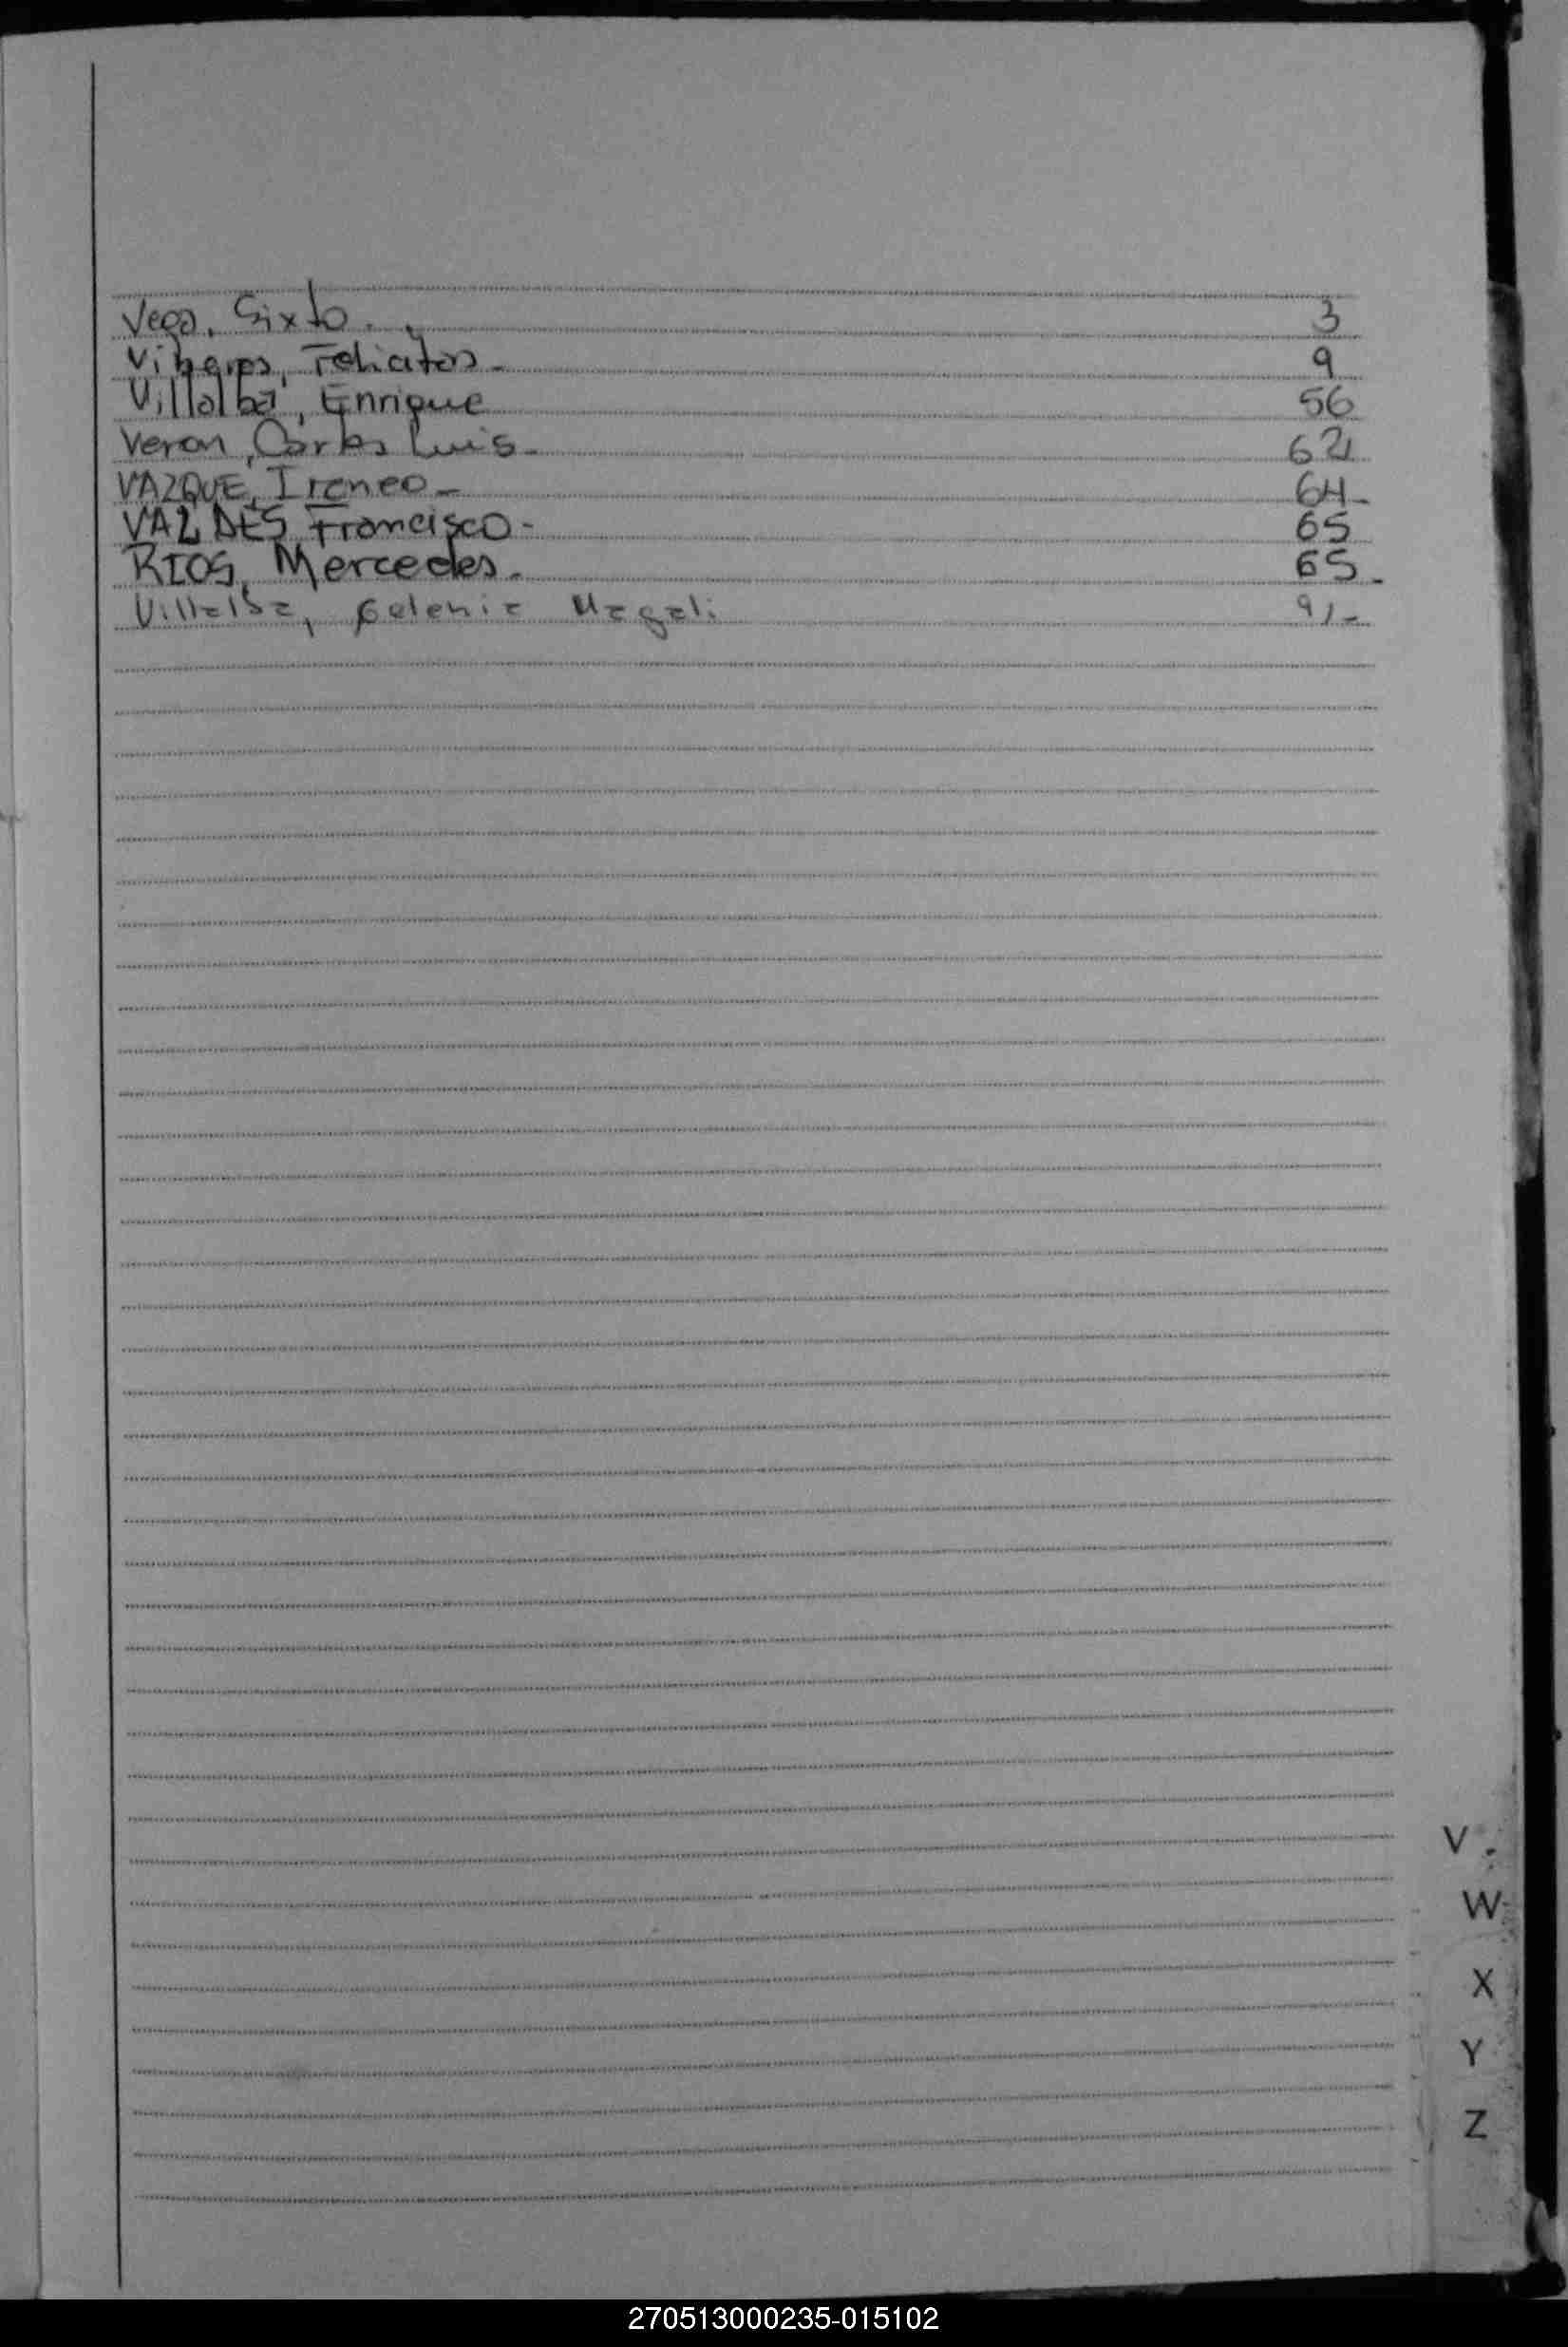 Vega, Sixto. 3
Felicitas 9
Villalba, Enrique 56
Veron, Carlos Luis. 62
VAZQUE, Ireneo - 64-
VALDES Francisco - 65
RIOS, Mercedes. 65.
Villalba, Magali 91-
V
W
X
Y
Z
270513000235-015102